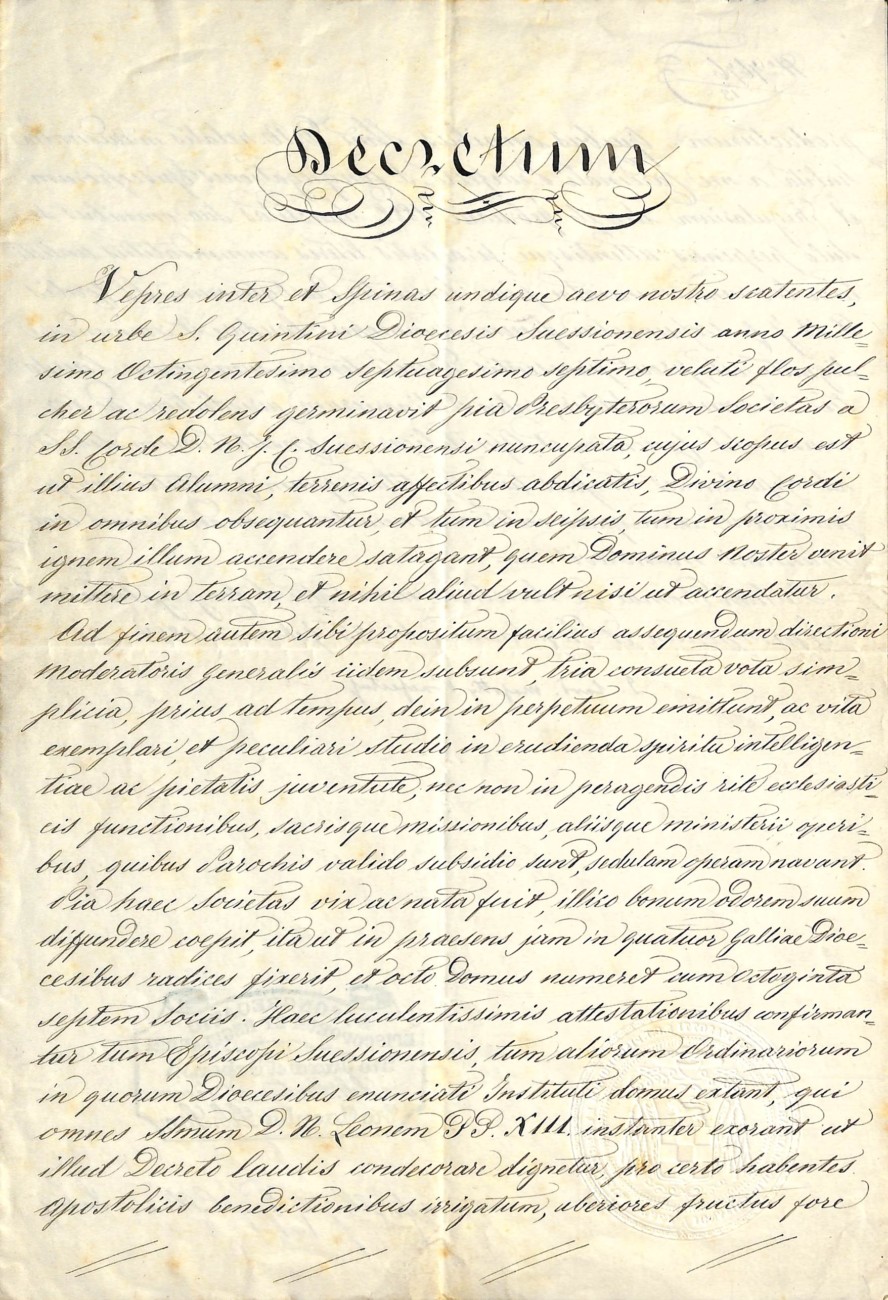 Decretum
Vepres inter et Spinas undique aevo nostro scatentes,
in urbe S. Quintini Dioecesis Suessionensis anno Mille=
simo Octingentesimo Septuagesimo septimo, veluti flos pul=
cher ac redolens germinavit pia Presbyterorum Societas a
SS. Corde D. N. J. C. Suessionensi nuncupata, cujus scopus est
ut illius Alumni, terrenis affectibus abdicatis, Divino Cordi
in omnibus obsequantur, et tum in seipsis, tum in proximis
ignem illum accendere satagant, quem Dominus Noster venit
mittere in terram, et nihil aliud vult nisi ut accendatur.
Ad finem autem sibi propositum facilius assequendum directioni
Moderatoris Generalis iidem subsunt, tria consueta vota sim=
plicia, prius ad tempus, dein in perpetuum emittunt, ac vita
exemplari, et peculiari studio in erudienda spiritu intelligen=
tiae ac pietatis juventute, nec non in peragendis rite ecclesiasti=
cis functionibus, sacrisque missionibus, aliisque ministerii operi=
bus, quibus Parochis valido subsidio sunt, sedulam operam navant.
Pia haec Societas vix ac nata fuit, illico bonum odorem suum
diffundere coepit, ita ut in praesens jam in quatuor Galliae Dioe=
cesibus radices fixerit, et octo Domus numeret cum Octoginta
septem Sociis. Haec luculentissimis attestationibus confirman=
tur tum Episcopi Suessionensis, tum aliorum Ordinariorum
in quorum Dioecesibus enunciati Instituti domus extant, qui
omnes SSmum D. N. Leonem PP. XIII. instanter exorant ut
illud Decreto laudis condecorare dignetur, pro certo habentes
Apostolicis benedictionibus irrigatum, uberiores fructus fore